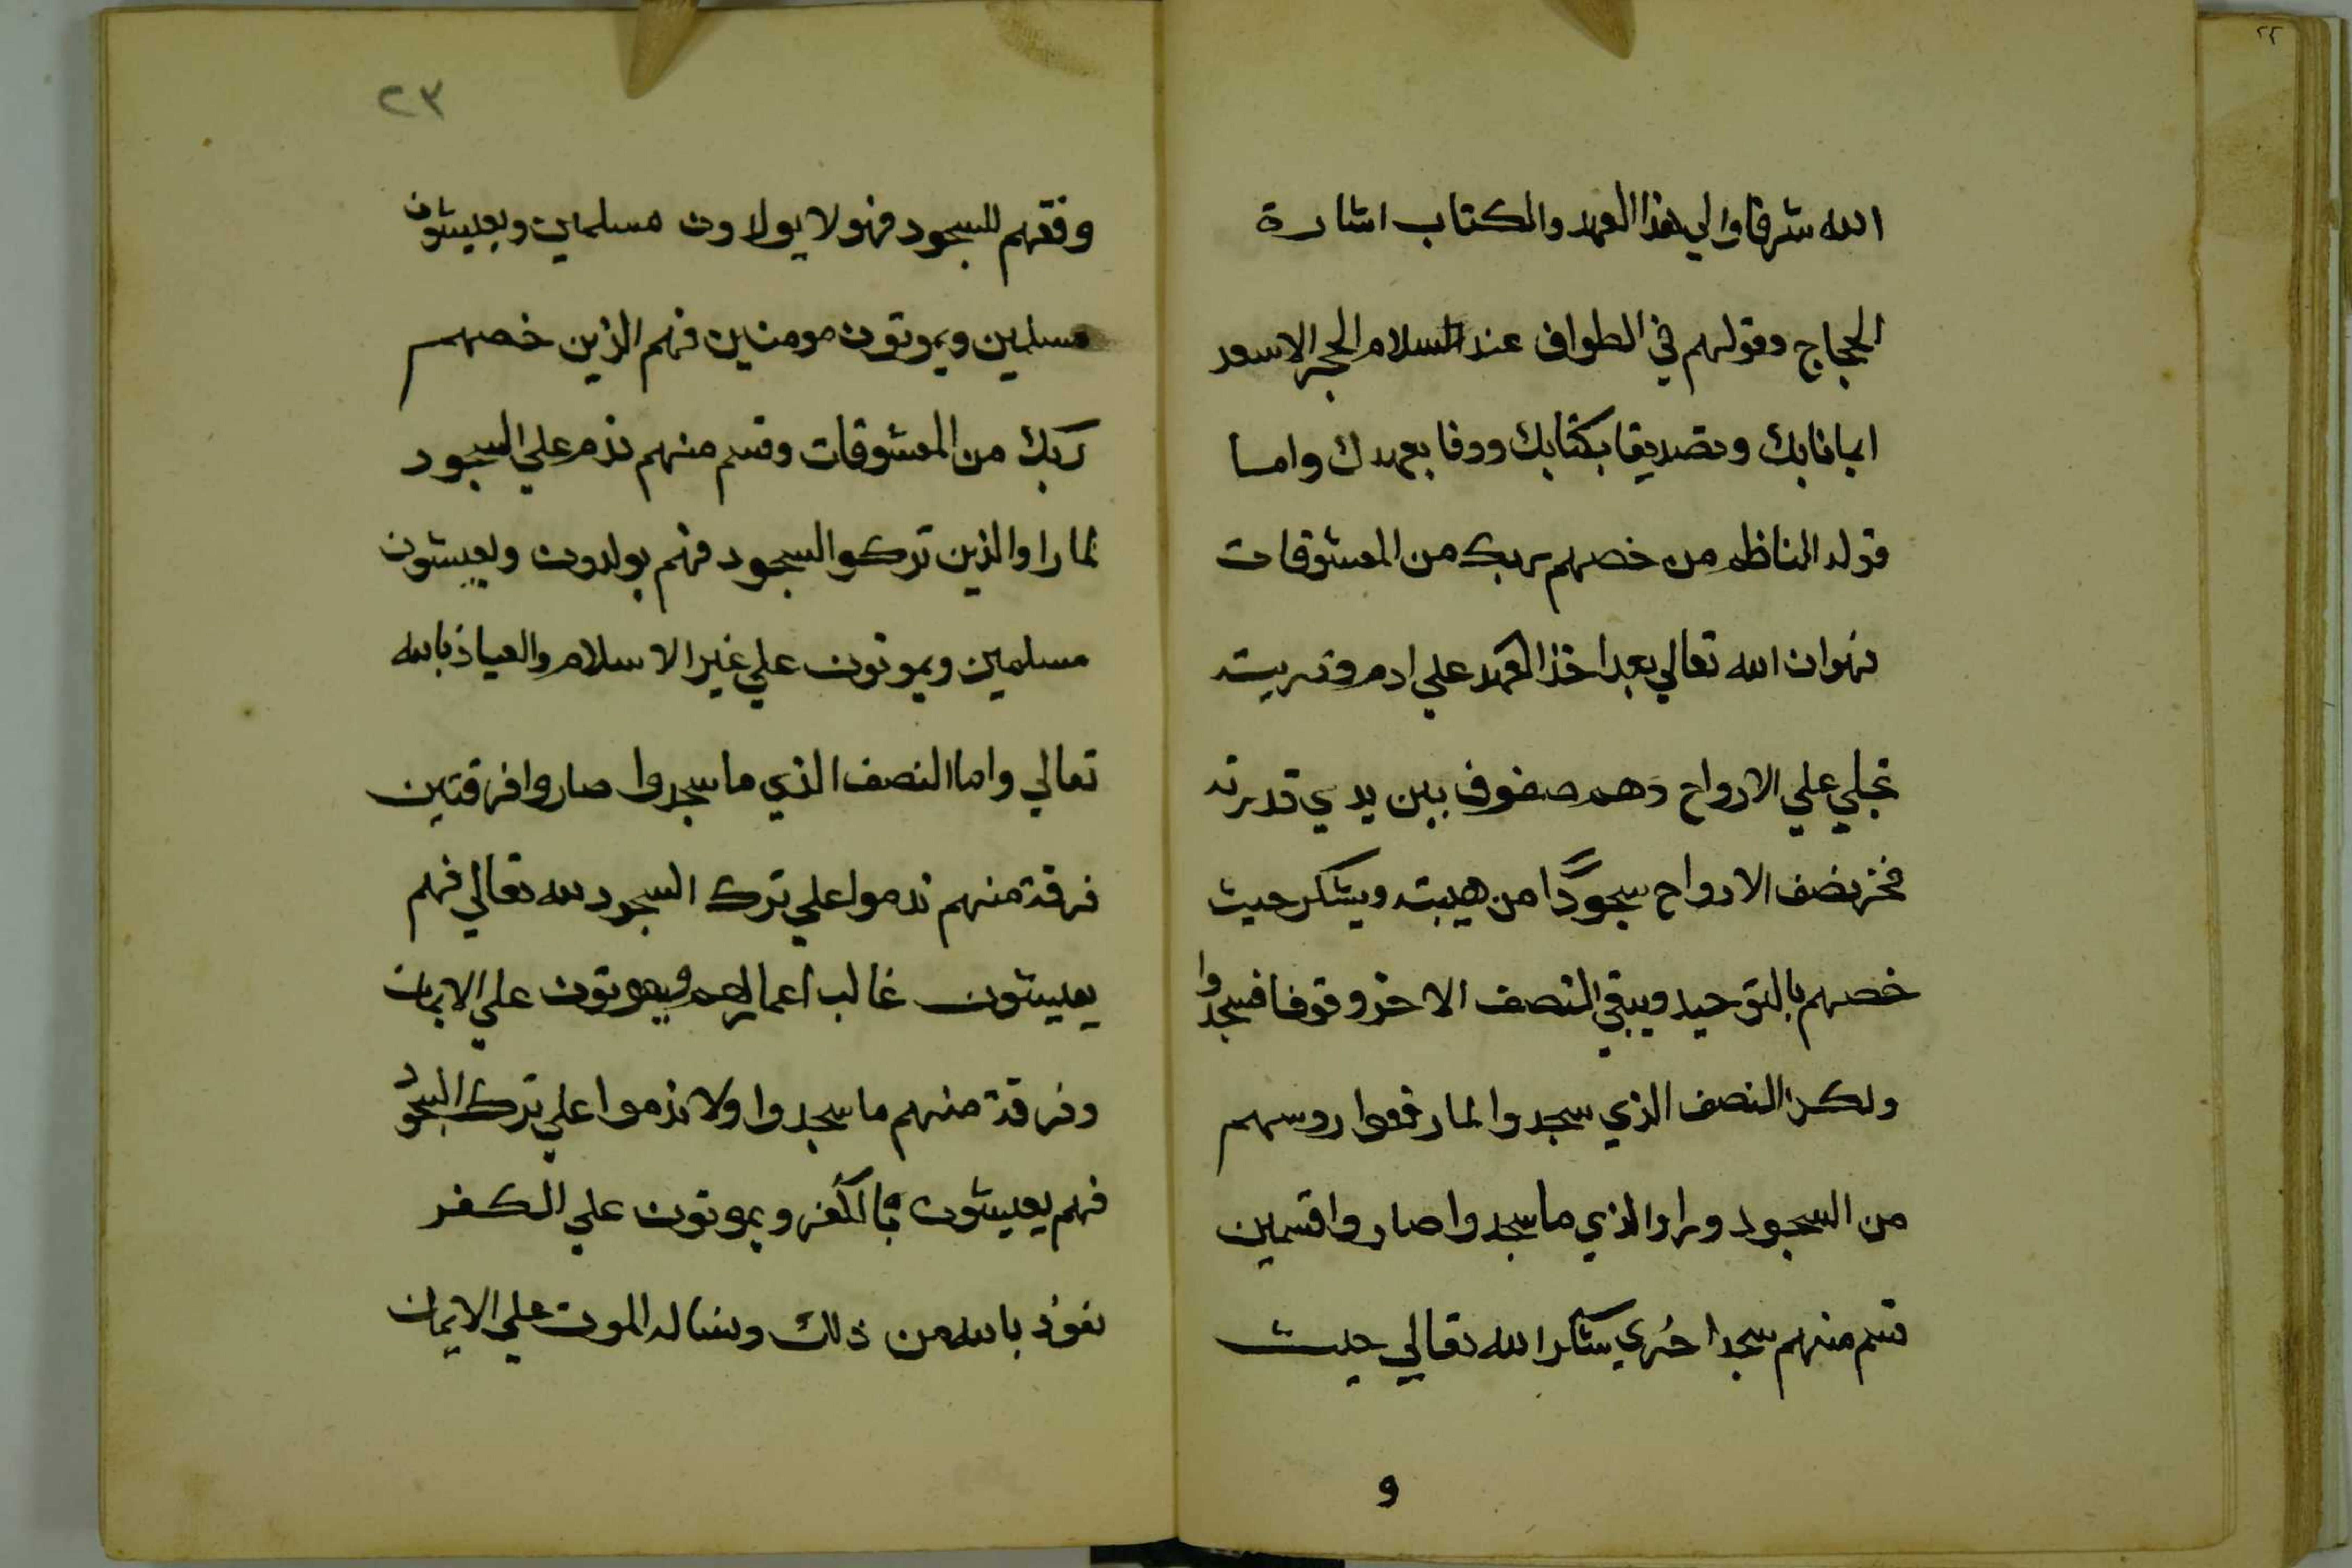 ٢٢
الله شرفا والي هذا العهد والكتاب اشارة
الحجاج وقولهم في الطواف عند السلام الحجر الاسعد
ايمانا بك وتصديقا بكتابك ووفا بعهدك واما
قوله الناظم من خصهم ربك من المعشوقات
فهو ان الله تعالي بعد اخذ العهد علي ادم وذريته
تجلي علي الارواح وهم صفوف بين يدي قدرته
فخر نصف الارواح سجودًا من هيبته ويشكر حيث
خصهم بالتوحيد ويبقي النصف الاخر وقوفا فسجدوا
ولكن النصف الذي سجدوا لما رفعوا روسهم
من السجود وراوا الذي ما سجدوا صاروا قسمين
قسم منهم سجد اخري شاكرا لله تعالي حيث
و
٢٣
وفقهم للسجود فهولا يولاون مسلمين ويعيشون
مسلمين ويموتون مومنين فهم الذين خصهم
ربك من المعشوقات وقسم منهم ندم علي السجود
لما راوا الذين تركوا السجود فهم يولدون ويعيشون
مسلمين ويموتون علي غير الاسلام والعياذ بالله
تعالي واما النصف الذي ما سجدوا صاروا فرقتين
فرقة منهم ندموا علي ترك السجود لله تعالي فهم
يعيشون غالب اعمالهم ويموتون علي الايمان
وفرقة منهم ما سجدوا ولا ندموا علي ترك السجود
فهم يعيشون بالكفر ويموتون علي الكفر
نعوذ بالله من ذلك ونساله الموت علي الايمان